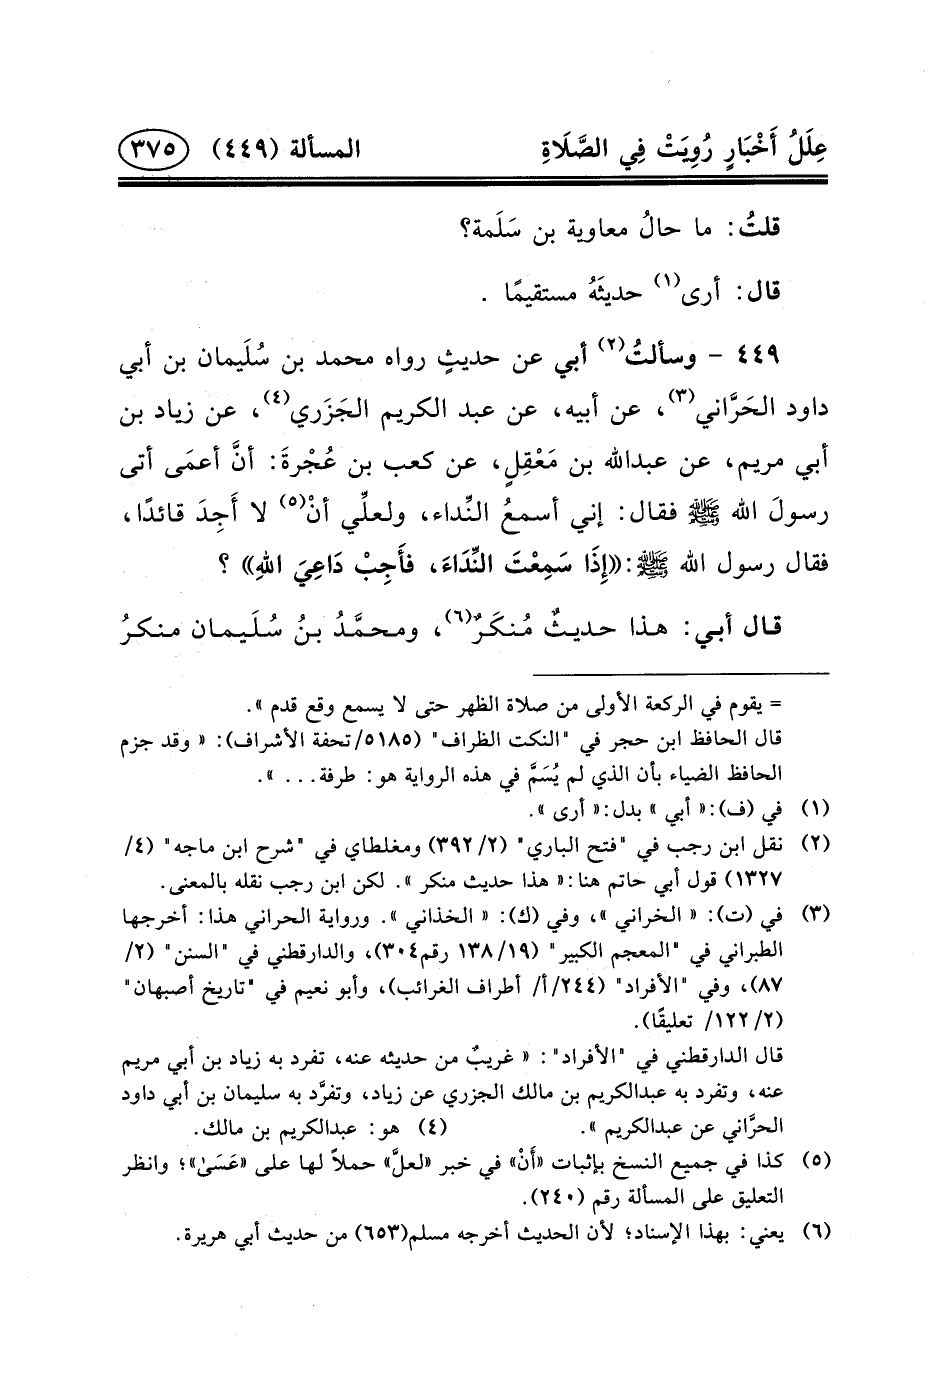 عِلَلُ أَخْبَارٍ رُوِيَتْ فِي الصَّلَاةِ المسألة (٤٤٩) ٣٧٥
قلتُ: ما حالُ معاوية بن سَلَمة؟
قال: أرى(١) حديثَهُ مستقيمًا .
٤٤٩ - وسألتُ(٢) أبي عن حديثٍ رواه محمد بن سُلَيمان بن أبي
داود الحَرَّاني(٣)، عن أبيه، عن عبد الكريم الجَزَري(٤)، عن زياد بن
أبي مريم، عن عبدالله بن مَعْقِلٍ، عن كعب بن عُجْرةَ: أنَّ أعمَى أتى
رسولَ الله ﷺ فقال: إني أسمعُ النِّداء، ولعلِّي أنْ(٥) لا أَجِدَ قائدًا،
فقال رسول الله ﷺ:«إِذَا سَمِعْتَ النِّدَاءَ، فَأَجِبْ دَاعِيَ اللهِ» ؟
قال أبي: هذا حديثٌ مُنكَرٌ(٦)، ومحمَّدُ بنُ سُلَيمان منكرُ
= يقوم في الركعة الأولى من صلاة الظهر حتى لا يسمع وقع قدم ».
قال الحافظ ابن حجر في "النكت الظراف" (٥١٨٥/تحفة الأشراف): « وقد جزم
الحافظ الضياء بأن الذي لم يُسَمَّ في هذه الرواية هو: طرفة... ».
(١) في (ف):« أبي » بدل:« أرى ».
(٢) نقل ابن رجب في "فتح الباري" (٢/ ٣٩٢) ومغلطاي في "شرح ابن ماجه" (٤/
١٣٢٧) قول أبي حاتم هنا:« هذا حديث منكر ». لكن ابن رجب نقله بالمعنى.
(٣) في (ت): « الخراني »، وفي (ك): « الخذاني ». ورواية الحراني هذا: أخرجها
الطبراني في "المعجم الكبير" (١٩/ ١٣٨ رقم٣٠٤)، والدارقطني في "السنن" (٢/
٨٧)، وفي "الأفراد" (٢٤٤/أ/ أطراف الغرائب)، وأبو نعيم في "تاريخ أصبهان"
(٢/ ١٢٢/ تعليقًا).
قال الدارقطني في "الأفراد": « غريبٌ من حديثه عنه، تفرد به زياد بن أبي مريم
عنه، وتفرد به عبدالكريم بن مالك الجزري عن زياد، وتفرَّد به سليمان بن أبي داود
الحرَّاني عن عبدالكريم ». (٤) هو: عبدالكريم بن مالك.
(٥) كذا في جميع النسخ بإثبات «أَنْ» في خبر «لعلَّ» حملاً لها على «عَسَىٰ»؛ وانظر
التعليق على المسألة رقم (٢٤٠).
(٦) يعني: بهذا الإسناد؛ لأن الحديث أخرجه مسلم(٦٥٣) من حديث أبي هريرة.